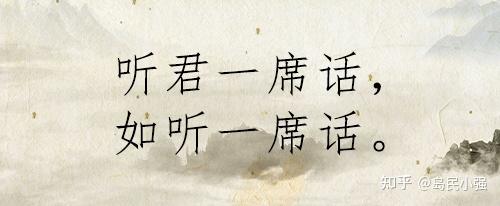 听君一席话，
如听一席话。
知乎 @岛民小强